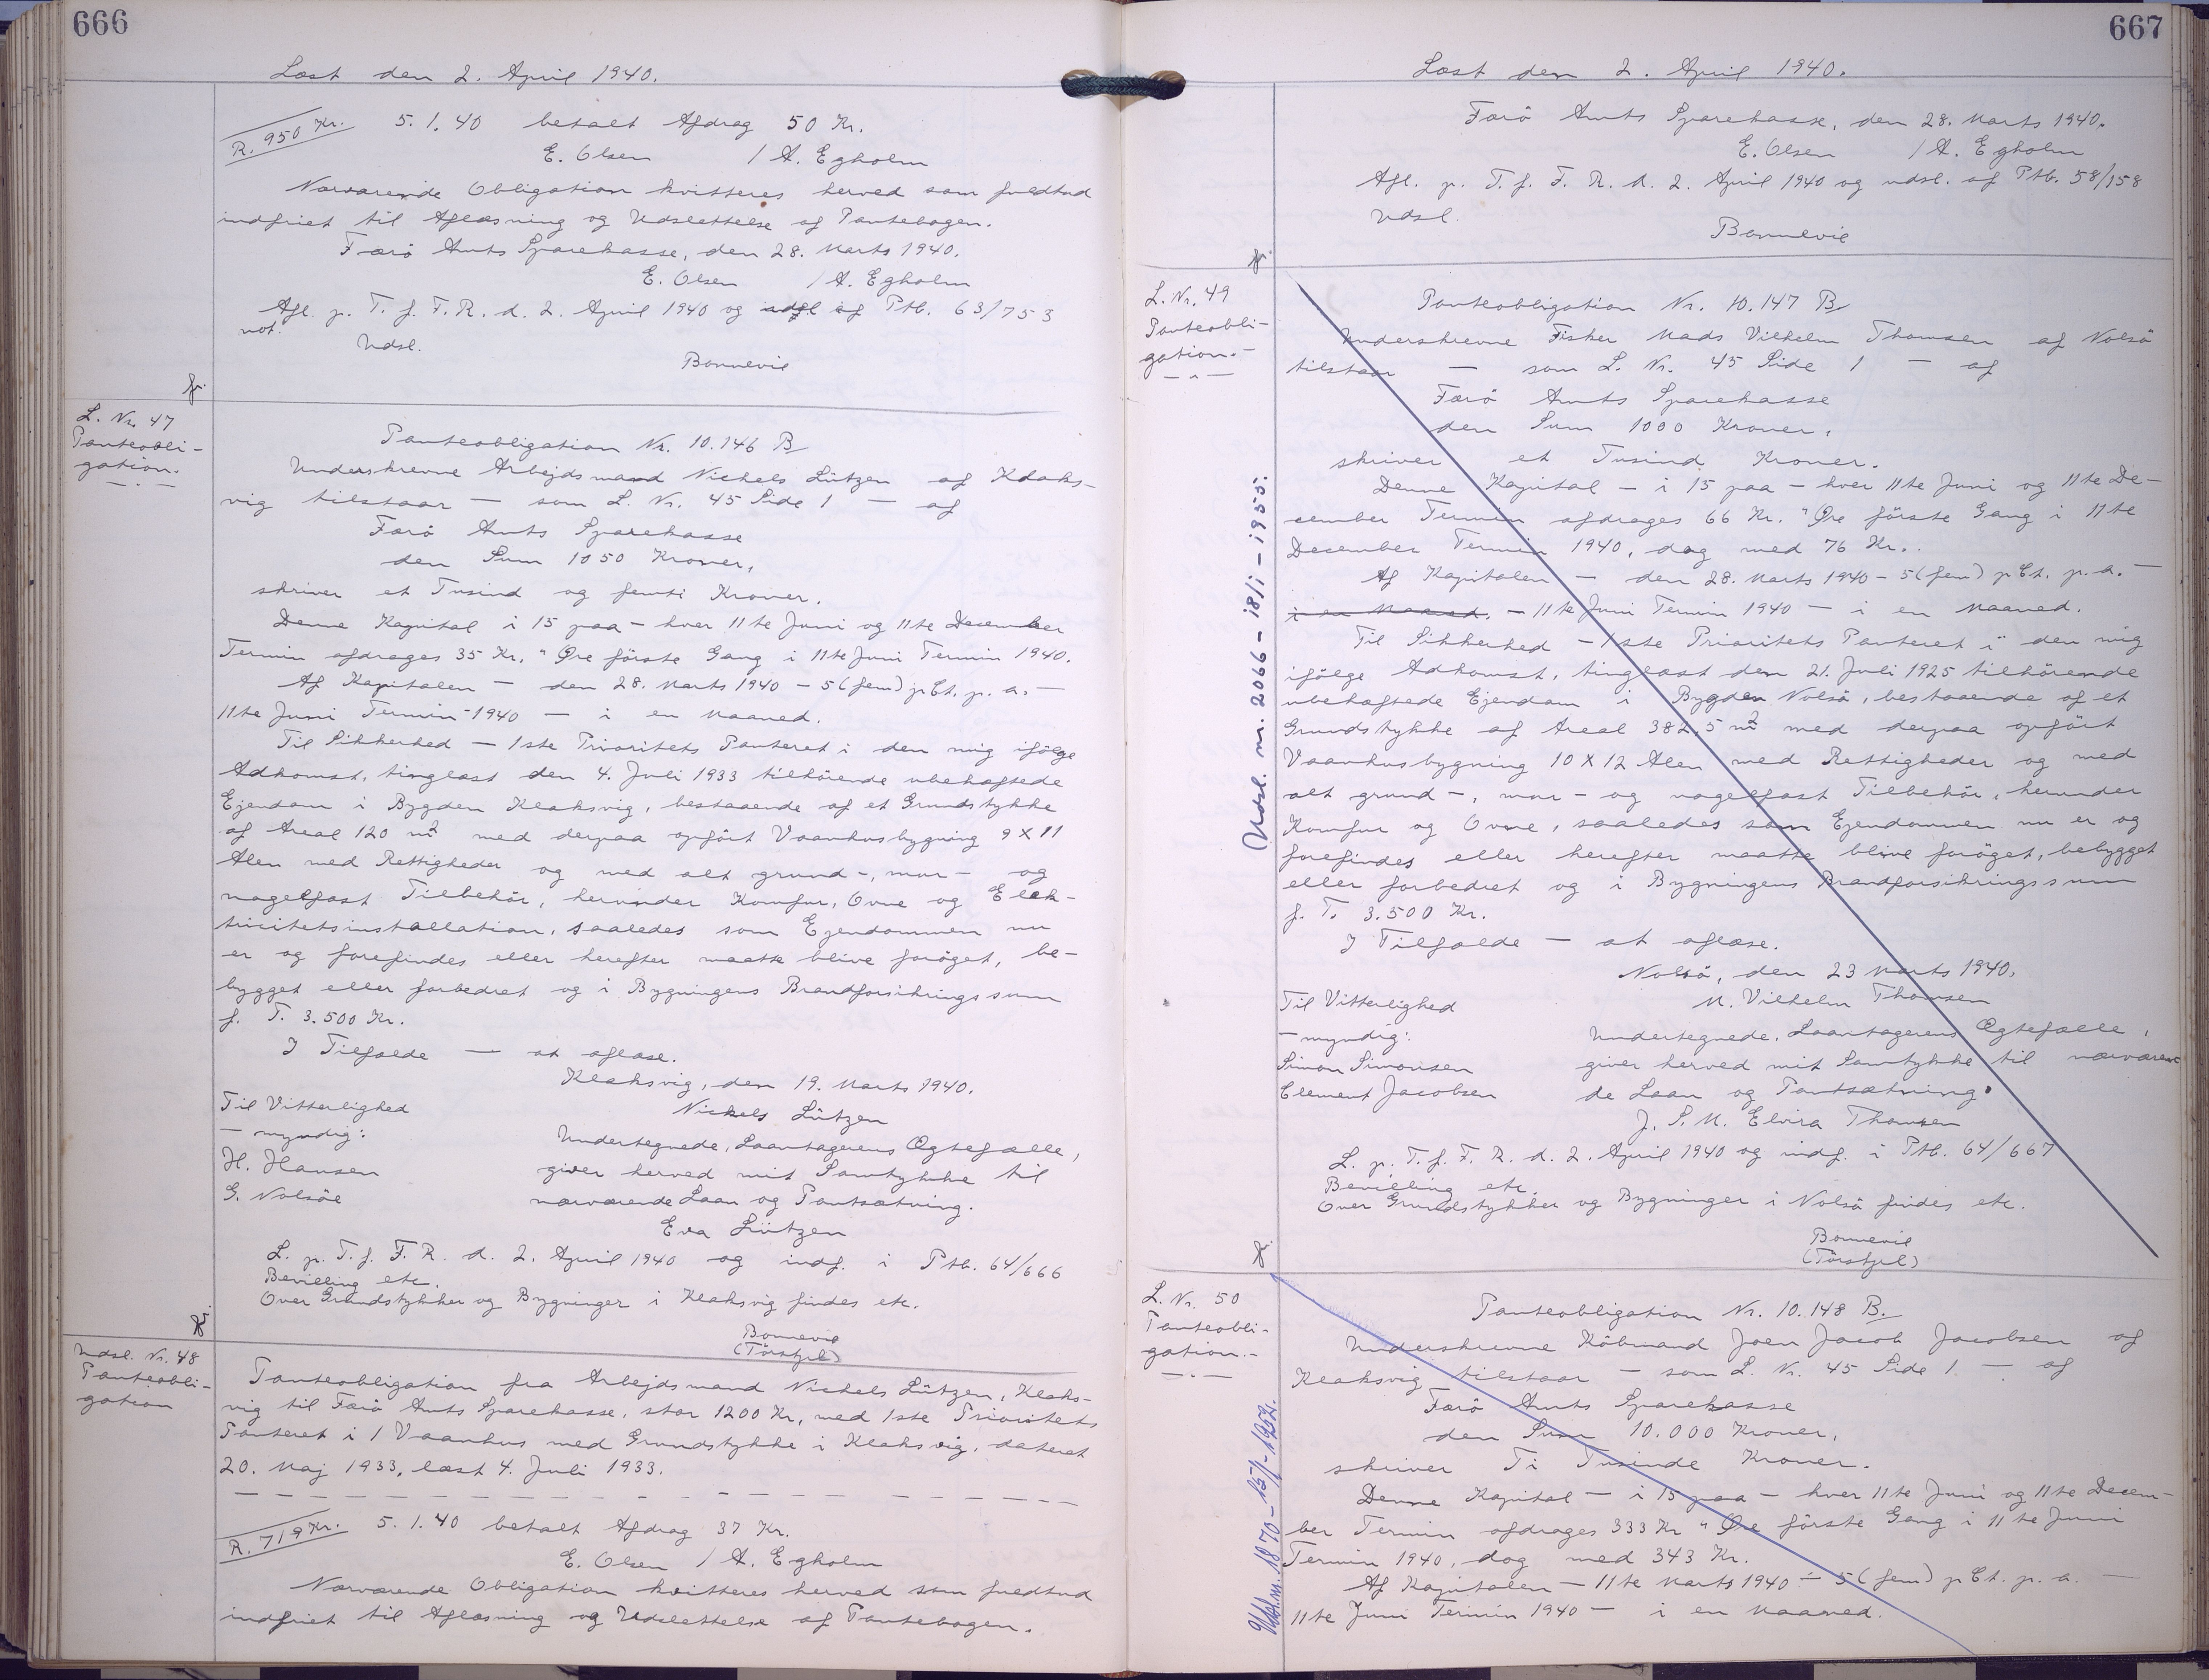 666
Læst den 2. April 1940.
R. 950 Kr. 5.1.40 betalt Afdrag 50 Kr.
E. Olsen / A. Egholm
Nærværende Obligation kvitteres herved som fuldtud
indfriet til Aflæsning og Udslettelse af Pantebogen.
Færö Amts Sparekasse, den 28. Marts 1940.
E. Olsen / A. Egholm
Afl. p. T. f. F. R. d. 2. April 1940 og udsl af Ptb. 63/753
not.
Udsl.
Bonnevie
fr.
L. Nr. 47
Panteobli-
gation.
Panteobligation Nr. 10.146 B
Underskrevne Arbejdsmand Nickels Lützen af Klaks-
vig tilstaar — som L. Nr. 45 Side 1 — af
Færö Amts Sparekasse
den Sum 1050 Kroner,
skriver et Tusind og femti Kroner.
Denne Kapital i 15 paa — hver 11te Juni og 11te December
Termin afdrages 35 Kr. " Øre förste Gang i 11te Juni Termin 1940.
Af Kapitalen — den 28. Marts 1940 — 5 (fem) pCt. p. a. —
11te Juni Termin 1940 — i en Maaned.
Til Sikkerhed — 1ste Prioritets Panteret i den mig ifölge
Adkomst, tinglæst den 4. Juli 1933 tilhörende ubehæftede
Ejendom i Bygden Klaksvig, bestaaende af et Grundstykke
af Areal 120 m² med derpaa opfört Vaanhusbygning 9 X 11
Alen med Rettigheder og med alt grund-, mur- og
nagelfast Tilbehör, herunder Komfur, Ovne og Elek-
tricitetsinstallation, saaledes som Ejendommen nu
er og forefindes eller herefter maatte blive foröget, be-
bygget eller forbedret og i Bygningens Brandforsikringssum
f. T. 3.500 Kr.
I Tilfælde — at aflæse.
Klaksvig, den 19. Marts 1940.
Til Vitterlighed Nickels Lützen
— myndig: Undertegnede, Laantagerens Ægtefælle,
H. Hansen giver herved mit Samtykke til
G. Nolsöe nærværende Laan og Pantsætning.
Eva Lützen
L. p. T. f. F. R. d. 2. April 1940 og indf. i Ptb. 64/666
Bevilling etc.
Over Grundstykker og Bygninger i Klaksvig findes etc.
Bonnevie
(Törstfrl)
fr.
Udsl. Nr. 48
Panteobli-
gation
Panteobligation fra Arbejdsmand Nickels Lützen, Klaks-
vig til Færö Amts Sparekasse, stor 1200 Kr, med 1ste Prioritets
Panteret i 1 Vaanhus med Grundstykke i Klaksvig, dateret
20. Maj 1933, læst 4. Juli 1933.
R. 719 Kr. 5.1.40 betalt Afdrag 37 Kr.
E. Olsen / A. Egholm
Nærværende Obligation kvitteres herved som fuldtud
indfriet til Aflæsning og Udslettelse af Pantebogen.
667
Læst den 2. April 1940.
Færö Amts Sparekasse, den 28. Marts 1940.
E. Olsen / A. Egholm
Afl. p. T. f. F. R. d. 2. April 1940 og udsl. af Ptb. 58/158
Udsl.
Bonnevie
fr.
L. Nr. 49
Panteobli-
gation.-
Udsl. nr. 2066 - 18/1 - 1955.
Panteobligation Nr. 10.147 B
Underskrevne Fisker Mads Vilhelm Thomsen af Nolsö
tilstaar — som L. Nr. 45 Side 1 — af
Færö Amts Sparekasse
den Sum 1000 Kroner,
skriver et Tusind Kroner.
Denne Kapital — i 15 paa — hver 11te Juni og 11te De-
cember Termin afdrages 66 Kr. " Øre förste Gang i 11te
December Termin 1940, dog med 76 Kr..
Af Kapitalen — den 28. Marts 1940 — 5 (fem) pCt. p. a. —
i en Maaned. — 11te Juni Termin 1940 — i en Maaned.
Til Sikkerhed — 1ste Prioritets Panteret i" den mig
ifölge Adkomst, tinglæst den 21. Juli 1925 tilhörende
ubehæftede Ejendom i Bygden Nolsö, bestaaende af et
Grundstykke af Areal 382,5 m² med derpaa opfört
Vaanhusbygning 10 X 12 Alen med Rettigheder og med
alt grund-, mur- og nagelfast Tilbehör, herunder
Komfur og Ovne, saaledes som Ejendommen nu er og
forefindes eller herefter maatte blive foröget, bebygget
eller forbedret og i Bygningens Brandforsikringssum
f. T. 3.500 Kr.
I Tilfælde — at aflæse.
Nolsö, den 23 Marts 1940.
Til Vitterlighed M. Vilhelm Thomsen
— myndig: Undertegnede, Laantagerens Ægtefælle,
Simon Simonsen giver herved mit Samtykke til nærværen
Clement Jacobsen de Laan og Pantsætning.
J. S. M. Elvira Thomsen
L. p. T. f. F. R. d. 2. April 1940 og indf. i Ptb. 64/667
Bevilling etc.
Over Grundstykker og Bygninger i Nolsö findes etc.
Bonnevie
(Törstfrl)
fr.
L. Nr. 50
Panteobli-
gation.-
Udsl. nr. 1870 - 15/ - 1952.
Panteobligation Nr. 10.148 B.
Underskrevne Köbmand Joen Jacob Jacobsen af
Klaksvig tilstaar — som L. Nr. 45 Side 1 — af
Færö Amts Sparekasse
den Sum 10.000 Kroner,
skriver Ti Tusinde Kroner.
Denne Kapital — i 15 paa — hver 11te Juni og 11te Decem-
ber Termin afdrages 333 Kr " Øre förste Gang i 11te Juni
Termin 1940, dog med 343 Kr.
Af Kapitalen — 11te Marts 1940 — 5 (fem) pCt. p. a. —
11te Juni Termin 1940 — i en Maaned.